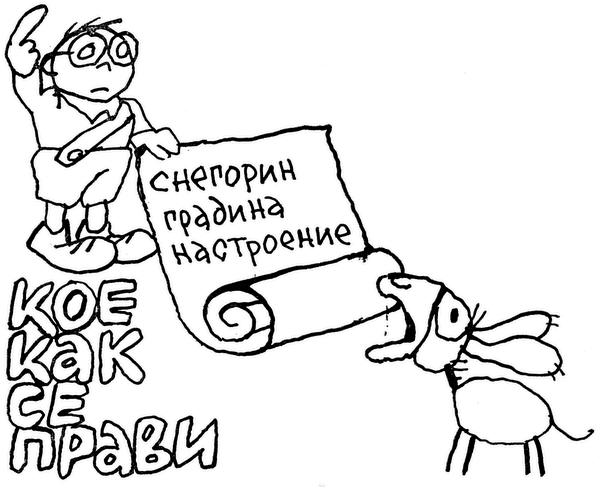 снегорин
градина
настроение
КОЕ
КАК
СЕ
ПРАВИ